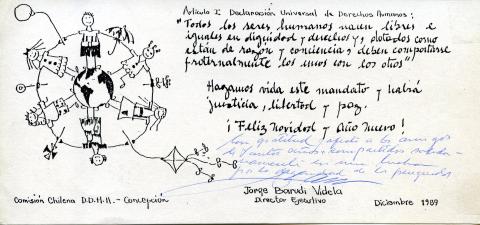 Artículo I Declaración Universal de Derechos Humanos:
"Todos los seres humanos nacen libres e
iguales en dignidad y derechos y, dotados como
están de razón y conciencia, deben comportarse
fraternalmente los unos con los otros"
Hagamos vida este mandato y habrá
justicia, libertad y paz.
¡Feliz Navidad y Año Nuevo!
Con gratitud y afecto a los amigos
compartidos
por la dignidad de los
Jorge Barudi Videla
Director Ejecutivo
Comisión Chilena DD.HH. - Concepción
Diciembre 1989